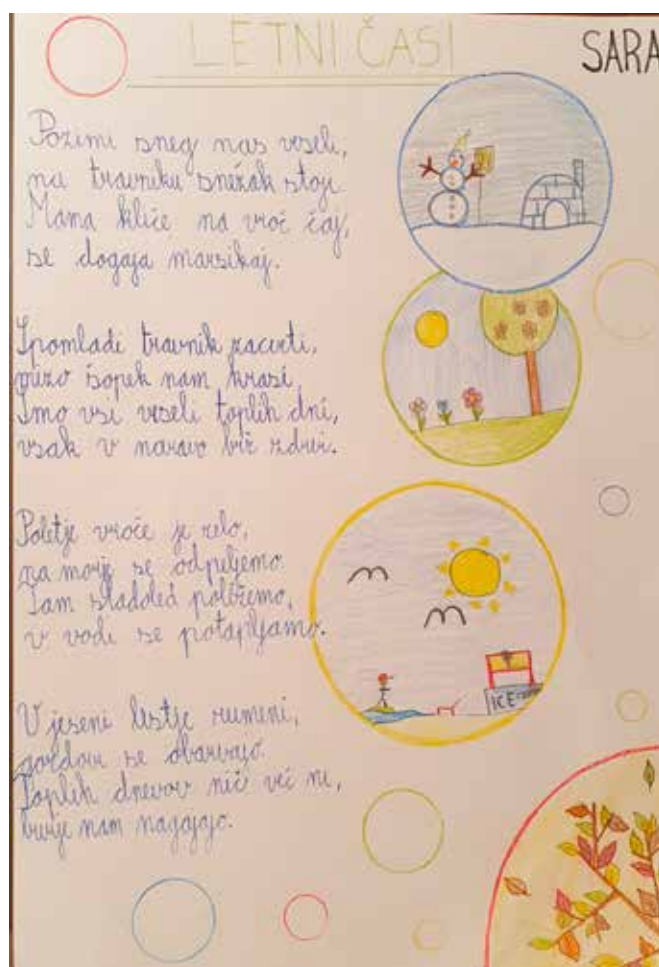 LETNI ČASI
SARA
Pozimi sneg nas veseli,
na travniku snežak stoji.
Mama kliče na vroč čaj,
se dogaja marsikaj.
Spomladi travnik zacveti,
mizo šopek nam krasi.
Smo vsi veseli toplih dni,
vsak v naravo bit zdrvi.
Poletje vroče je zelo,
na morje se odpeljemo.
Tam sladoled poližemo,
v vodi se potapljamo.
ICE
V jeseni listje rumeni,
gozdovi se obarvajo.
Toplih dnevov nič več ni,
burje nam nagajajo.